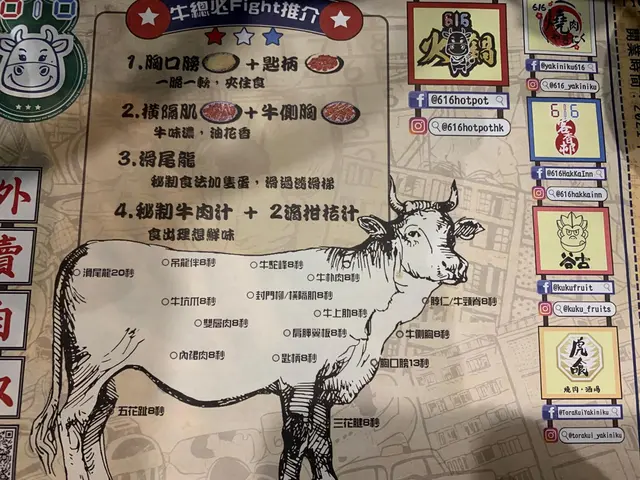 616
牛總必Fight推介
1.胸口膀 +匙柄
一脆一軟,夾住食
2.橫隔肌 +牛側胸
牛味濃,油花香
3.滑尾龍
秘制食法加隻蛋,滑過德滑梯
4.秘制牛肉汁 + 2滴柑桔汁
食出理想鮮味
滑尾龍20秒
吊龍伴8秒
牛鴕峰8秒
牛朴肉8秒
牛坑爪8秒
封門柳/橫隔肌8秒
脖仁/牛頸脊8秒
雙層肉8秒
牛上肋8秒
肩胛翼板8秒
牛側胸8秒
內裙肉8秒
匙柄8秒
胸口膀13秒
五花趾8秒
三花腱8秒
外
賣
自
616
火鍋
@616hotpot
@616hotpothk
616
燒肉
@yakiniku616
@616_yakiniku
616
客香邨
@616HakKaInn
@616hakkainn
谷古
@kukufruit
@kuku_fruits
虎
燒肉・酒場
@ToraKuiYakiniku
@torakui_yakiniku